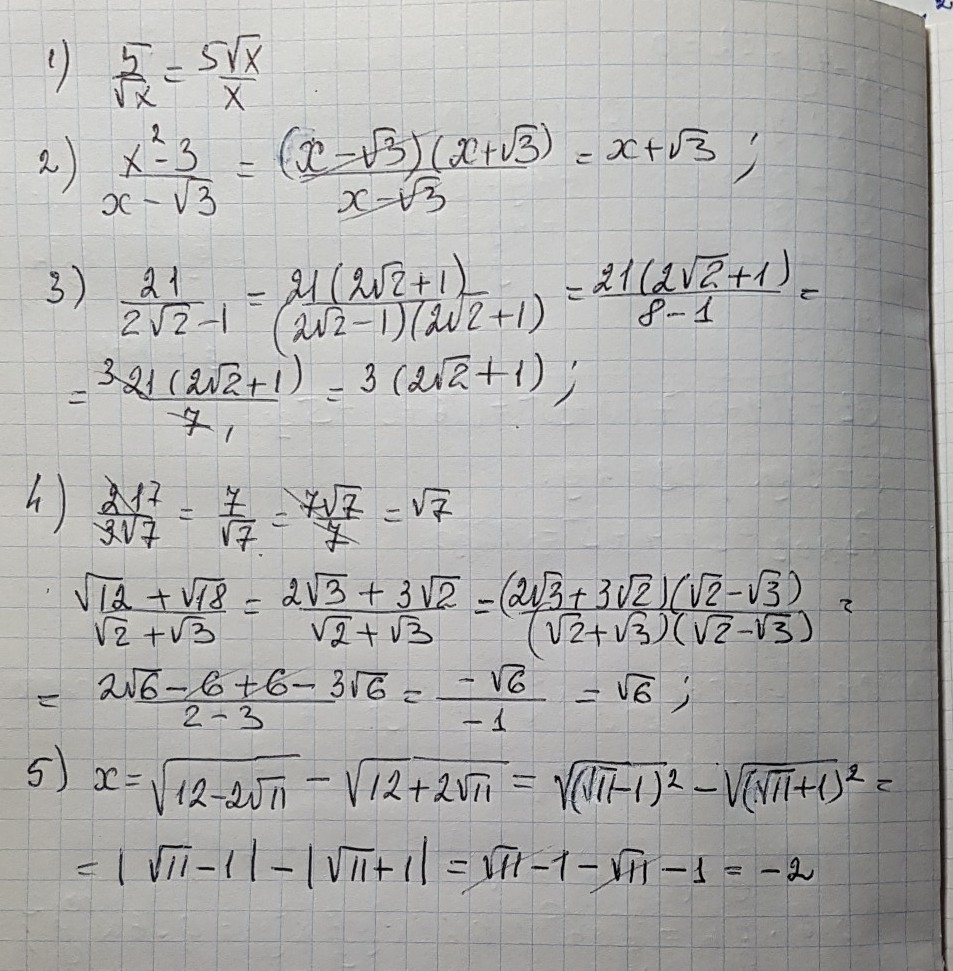 1) 5/√x = 5√x/x
2) (x²-3)/(x-√3) = (x-√3)(x+√3)/(x-√3) = x+√3 ;
3) 21/(2√2-1) = 21(2√2+1)/((2√2-1)(2√2+1)) = 21(2√2+1)/(8-1) =
= 3 21(2√2+1)/7 1 = 3(2√2+1) ;
4) 217/3√7 = 7/√7 = 7√7/7 = √7
(√12+√18)/(√2+√3) = (2√3+3√2)/(√2+√3) = (2√3+3√2)(√2-√3)/((√2+√3)(√2-√3)) =
= (2√6-6+6-3√6)/(2-3) = -√6/-1 = √6 ;
5) x = √(12-2√11) - √(12+2√11) = √(√11-1)² - √(√11+1)² =
= |√11-1| - |√11+1| = √11-1-√11-1 = -2